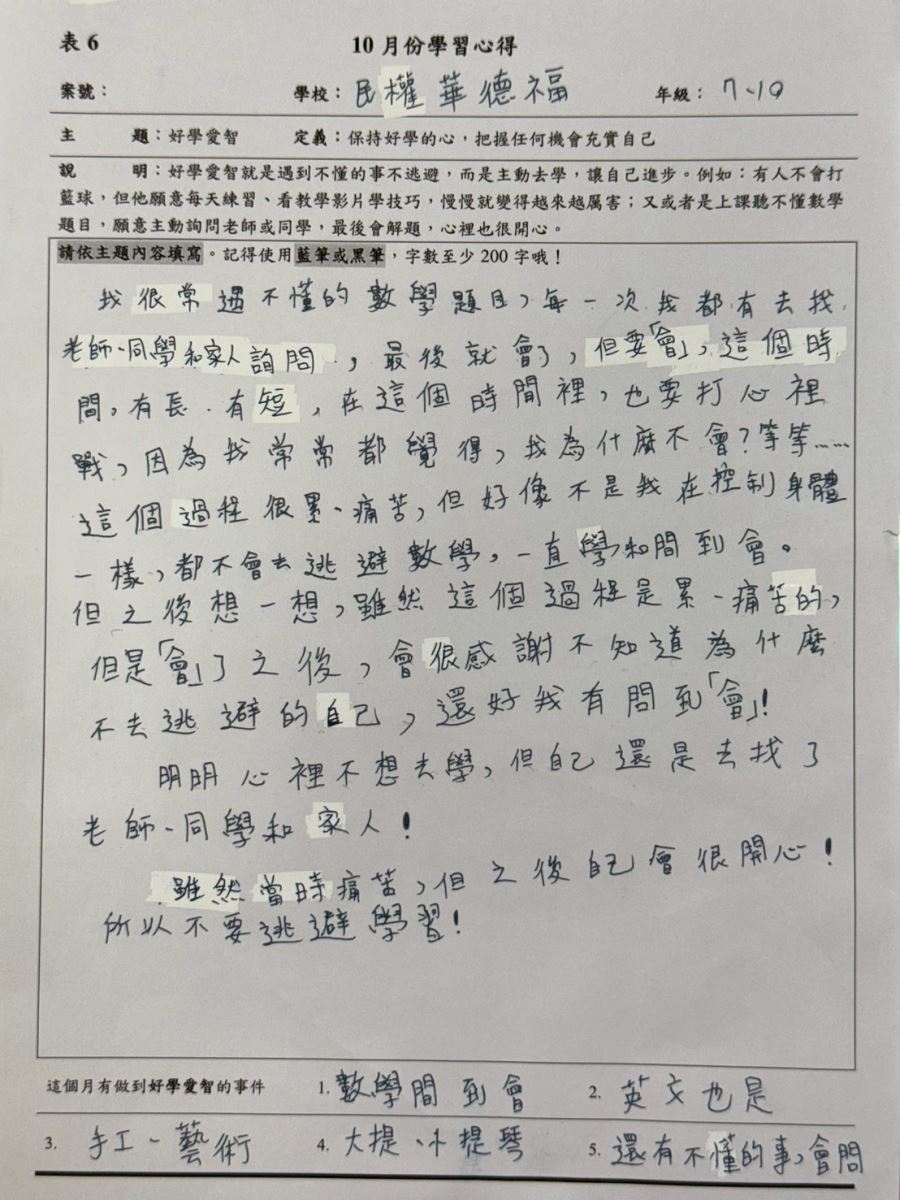 表 6 10 月份學習心得
案號： 學校：民權華德福 年級：7-10
主 題：好學愛智 定義：保持好學的心，把握任何機會充實自己
說 明：好學愛智就是遇到不懂的事不逃避，而是主動去學，讓自己進步。例如：有人不會打
籃球，但他願意每天練習、看教學影片學技巧，慢慢就變得越來越厲害；又或者是上課聽不懂數學
題目，願意主動詢問老師或同學，最後會解題，心裡也很開心。
請依主題內容填寫。記得使用藍筆或黑筆，字數至少 200 字哦！
我很常遇不懂的數學題目，每一次我都有去找
老師、同學和家人詢問，最後就會了，但要「會」，這個時
間，有長、有短，在這個時間裡，也要打心裡
戰，因為我常常都覺得，我為什麼不會？等等……
這個過程很累、痛苦，但好像不是我在控制身體
一樣，都不會去逃避數學，一直學和問到會。
但之後想一想，雖然這個過程是累、痛苦的，
但是「會」了之後，會很感謝不知道為什麼
不去逃避的自己，還好我有問到「會」！
明明心裡不想去學，但自己還是去找了
老師、同學和家人！
雖然當時痛苦，但之後自己會很開心！
所以不要逃避學習！
這個月有做到好學愛智的事件 1. 數學問到會 2. 英文也是
3. 手工、藝術 4. 大提、小提琴 5. 還有不懂的事，會問